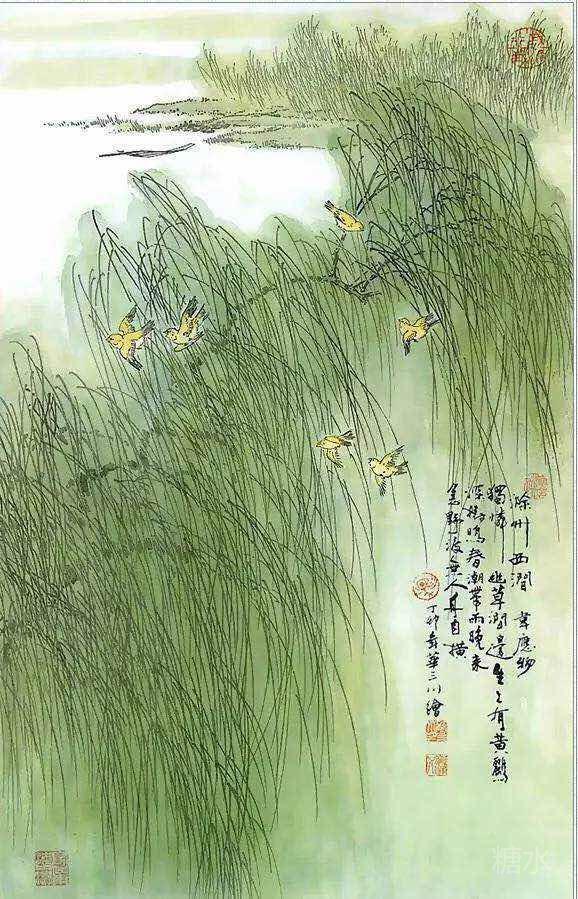 滁州西澗 韋應物
獨憐幽草澗邊生上有黃鸝
深樹鳴春潮帶雨晚來
急野渡無人舟自橫
丁卯年華三川繪
糖水